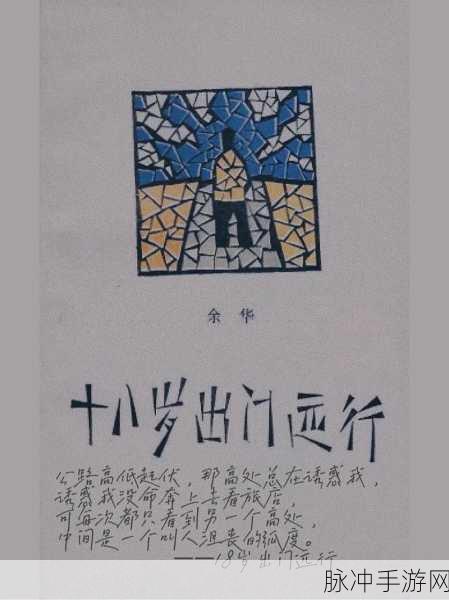 余 华
十八岁出门远行
公路高低起伏，那高处总在诱惑我，
诱惑我没命奔上去看旅店，
可每次都只看到另一个高处，
中间是一个叫人沮丧的弧度。
——18岁出门远行
脉冲手游网